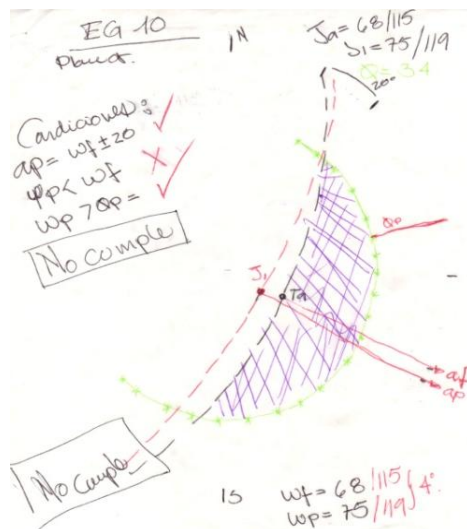 EG 10
Planar.
N
Ja = 68/115
J1 = 75/119
Ø = 34
20°
Condiciones:
αp = Wf ± 20 ✓
ψp < Wf X
Wp > Øp = ✓
No cumple
Øp
J1
Ja
αf
αp
No cumple
1S
Wf = 68/115
Wp = 75/119
4°